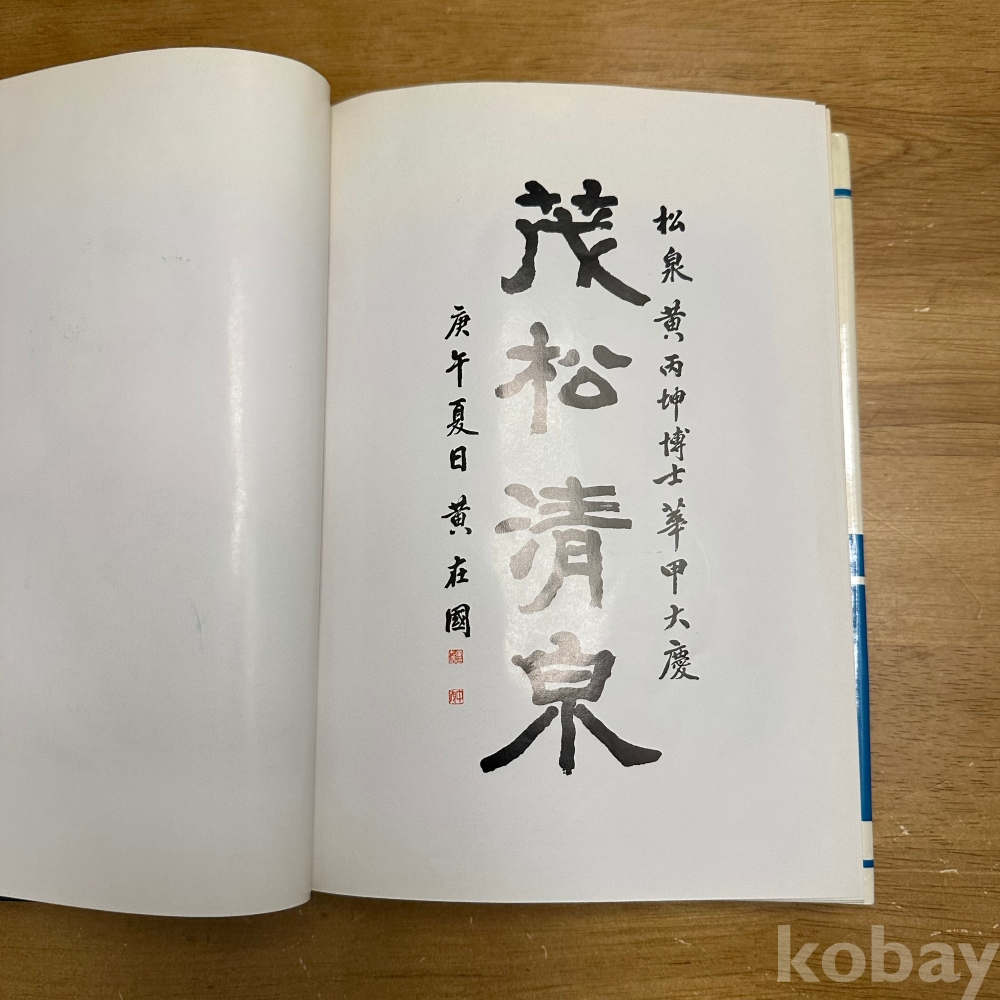 松泉黃丙坤博士華甲大慶
茂松清泉
庚午夏日 黃在國
kobay